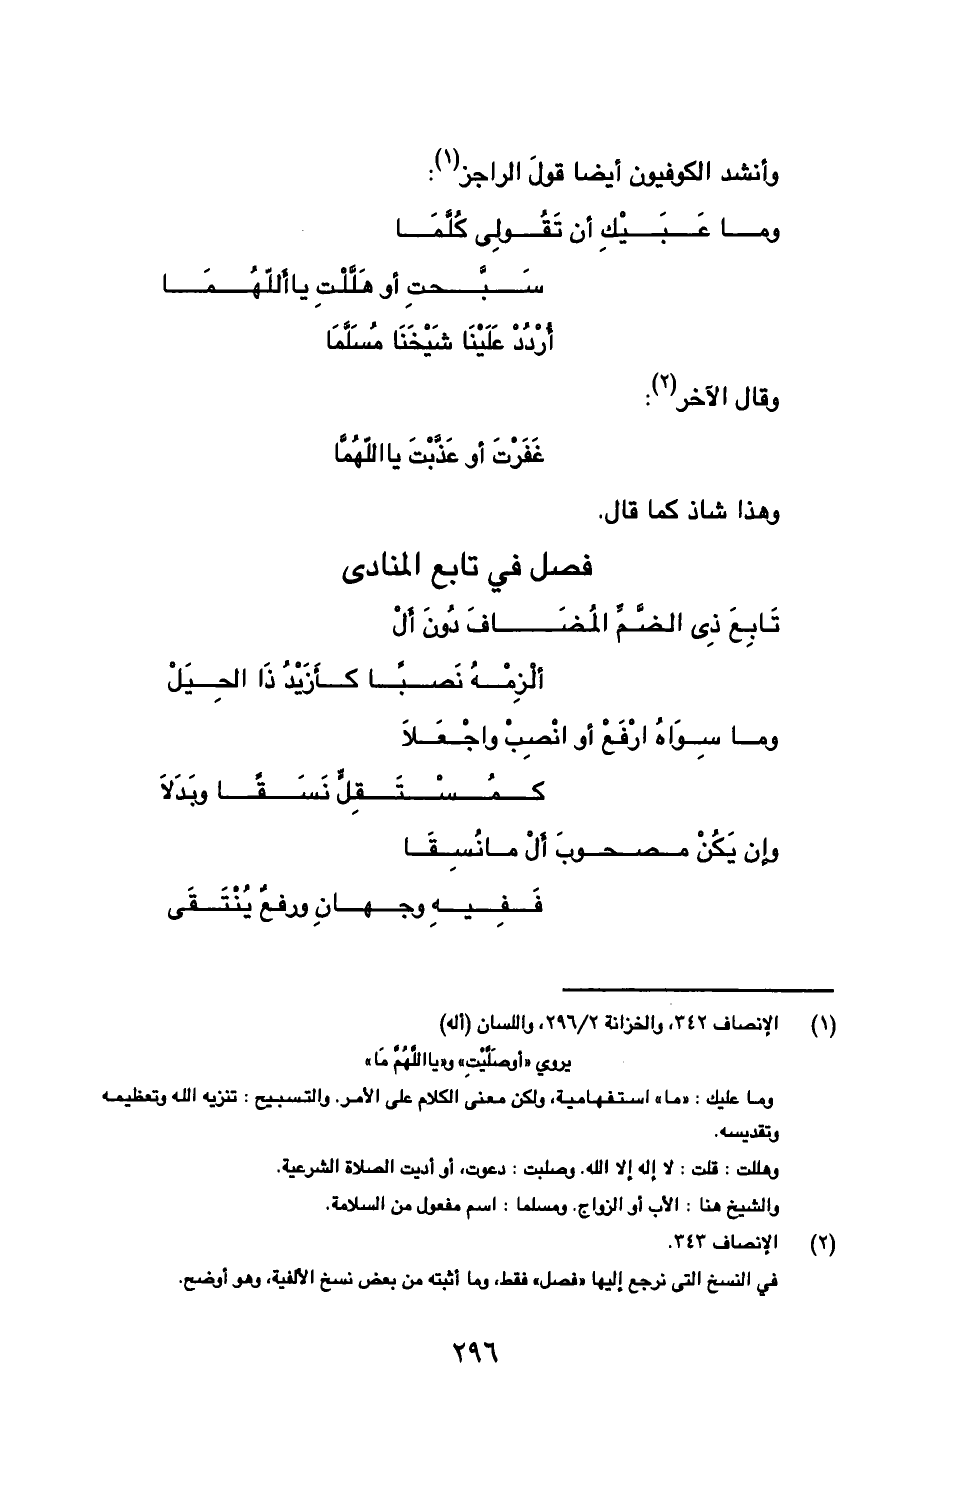 وأنشد الكوفيون أيضا قولَ الراجز(١):
ومـــا عَـــبَـــيْكِ أن تَقُـــولِى كُلَّمَـــا
سَـــبَّـــحتِ أو هَلَّلْتِ ياأَللّهُـــمَـــا
أُرْدُدْ عَلَيْنَا شَيْخَنَا مُسَلَّمَا
وقال الآخر(٢):
غَفَرْتَ أو عَذَّبْتَ يااللّهُمَّا
وهذا شاذ كما قال.
فصل في تابع المنادى
تَابِعَ ذِى الضَّمِّ المُضَـــافَ دُونَ أَلْ
ألْزِمْـــهُ نَصـــبًـــا كـــأَزَيْدُ ذَا الحِـــيَلْ
ومـــا سِـــوَاهُ ارْفَعْ أو انْصِبْ واجْـــعَـــلاَ
كـــمُـــسْـــتَـــقِلٍّ نَسَـــقًـــا وبَدَلاَ
وإن يَكُنْ مـــصـــحـــوبَ أَلْ مـــانُسِـــقَـــا
فَـــفِـــيـــهِ وجـــهـــانِ ورفعٌ يُنْتَـــقَى
(١) الإنصاف ٣٤٢، والخزانة ٢٩٦/٢، واللسان (أله)
يروي «أوصَلَّيْتِ» و«يااللَّهُمَّ مَا»
وما عليك : «ما» استفهامية، ولكن معنى الكلام على الأمر. والتسبيح : تنزيه الله وتعظيمه
وتقديسه.
وهللت : قلت : لا إله إلا الله. وصليت : دعوت، أو أديت الصلاة الشرعية.
والشيخ هنا : الأب أو الزواج. ومسلما : اسم مفعول من السلامة.
(٢) الإنصاف ٣٤٣.
في النسخ التى نرجع إليها «فصل» فقط، وما أثبته من بعض نسخ الألفية، وهو أوضح.
٢٩٦